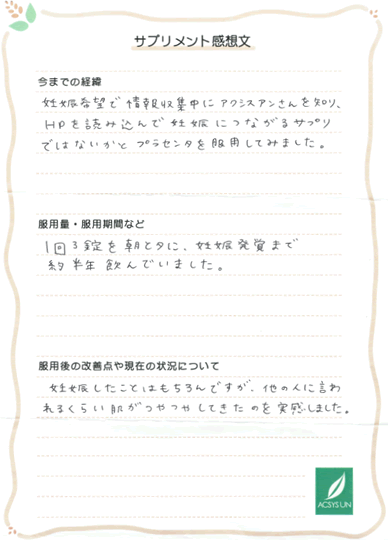 サプリメント感想文
今までの経緯
妊娠希望で情報収集中にアクシスアンさんを知り、
HPを読み込んで妊娠につながるサプリ
ではないかとプラセンタを服用してみました。
服用量・服用期間など
1回3錠を朝と夕に、妊娠発覚まで
約半年飲んでいました。
服用後の改善点や現在の状況について
妊娠したことはもちろんですが、他の人に言わ
れるくらい肌がつやつやしてきたのを実感しました。
ACSYS UN